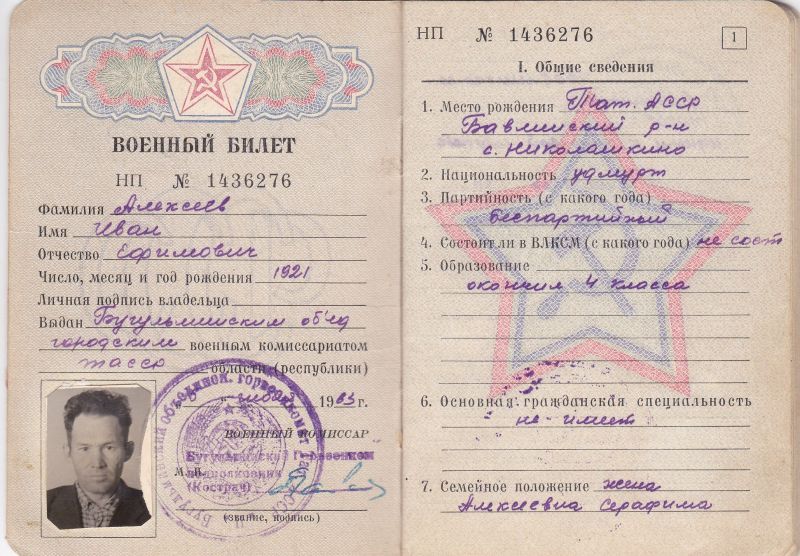 ВОЕННЫЙ БИЛЕТ
НП № 1436276
Фамилия Алексеев
Имя Иван
Отчество Ефимович
Число, месяц и год рождения 1921
Личная подпись владельца
Выдан Бугульминским об'ед
городским военным комиссариатом
тасср области (республики)
1963 г.
ВОЕННЫЙ КОМИССАР
Бугульминский Горвоенком
подполковник
М. П. (Кострач)
(звание, подпись)
НП № 1436276
1
I. Общие сведения
1. Место рождения Тат. АССР
Бавлинский р-н
с. Николашкино
2. Национальность удмурт
3. Партийность (с какого года)
беспартийный
4. Состоит ли в ВЛКСМ (с какого года) не сост
5. Образование
окончил 4 класса
6. Основная гражданская специальность
не имеет
7. Семейное положение жена
Алексеевна Серафима